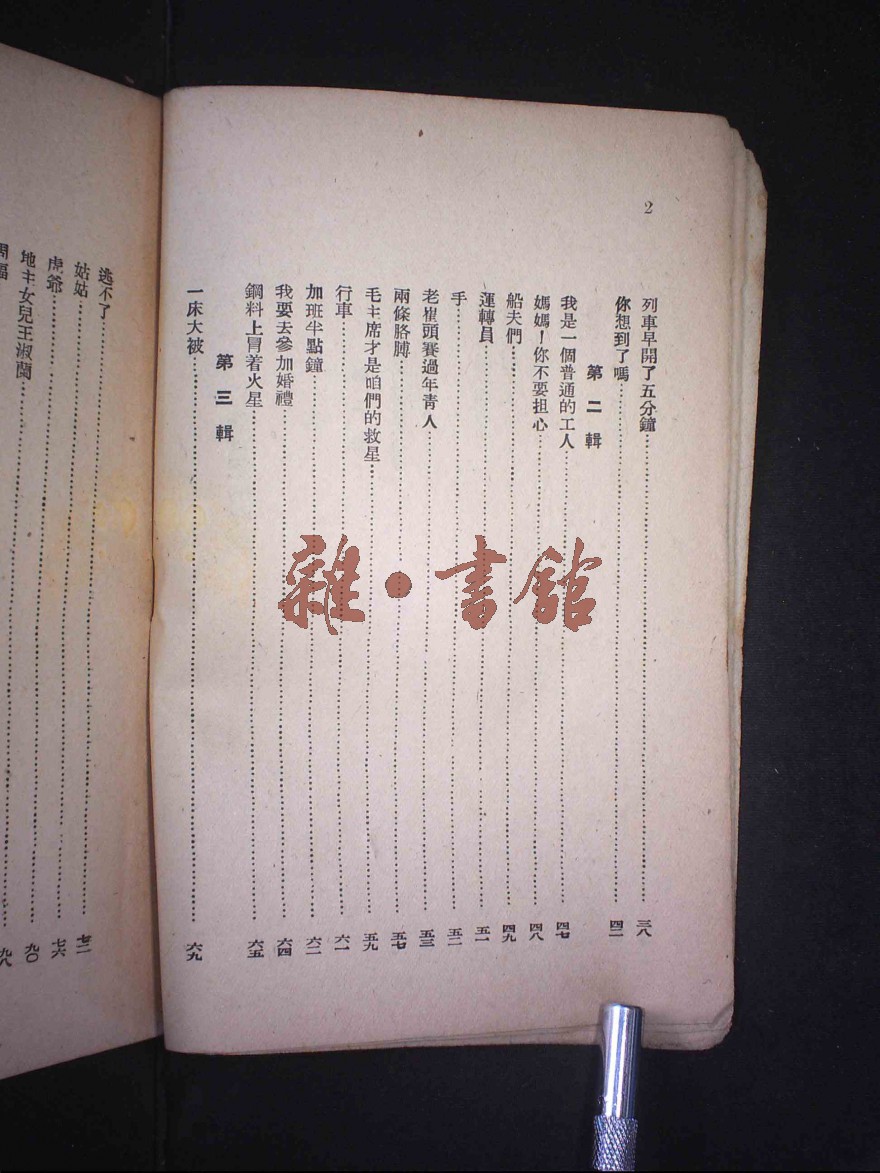 2
列車早開了五分鐘……三八
你想到了嗎……四二
第二輯
我是一個普通的工人……四七
媽媽！你不要担心……四八
船夫們……四九
運轉員……五一
手……五二
老崔頭賽過年青人……五三
兩條胳膊……五七
毛主席才是咱們的救星……五九
行車……六一
加班半點鐘……六二
我要去參加婚禮……六四
鋼料上冒着火星……六五
第三輯
一床大被……六九
逃不了……七二
姑姑……七六
虎爺……九〇
地主女兒王淑蘭……九八
雜·書館